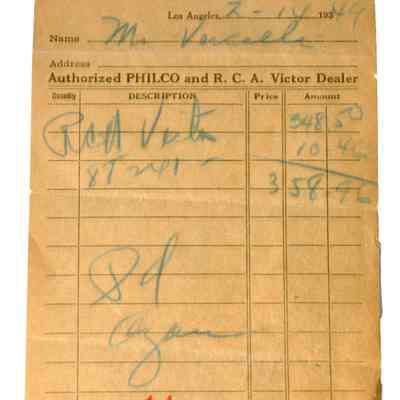 Los Angeles, 2-14 1934 49
Name Mr
Address
Authorized PHILCO and R. C. A. Victor Dealer
Quantity DESCRIPTION Price Amount
RCA Victor 348 50
8T241 - 10 46
358 96
Pd